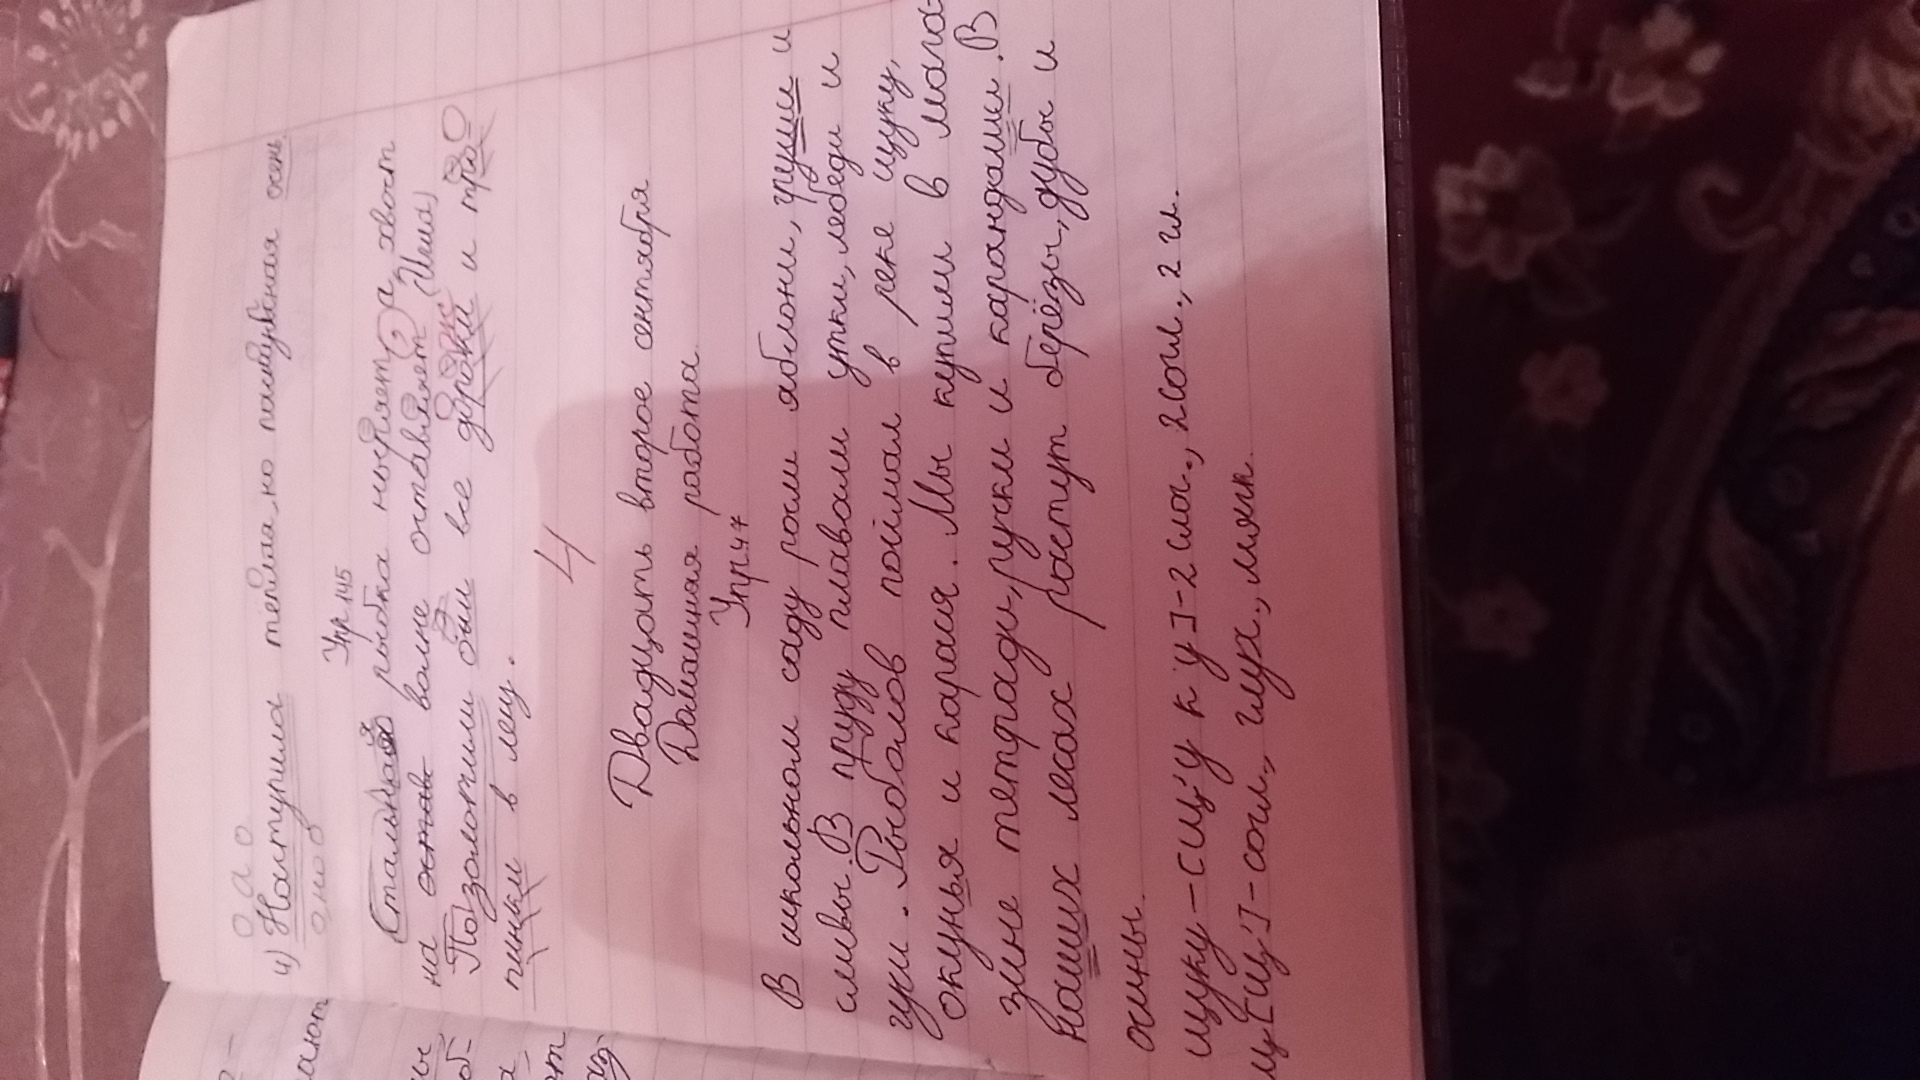 4) Наступила тёплая, но пасмурная осень
Упр. 145
Стальной рыбка ныряет, а хвост
на волне оставляет (Игла)
Позолотили они все дороги и тро-
пинки в лесу.
4
Двадцать второе сентября
Домашная работа
Упр. 47
В школьном саду росли яблони, груши и
сливы. В пруду плавали утки, лебеди и
гуси. Рыболов поймал в реке щуку,
окунья и карася. Мы купили в мага-
зине тетради, ручки и карандаши. В
наших лесах растут берёзы, дубы и
осины.
щуку – [щ’у к у] - 2 слог., 2 согл., 2 гл.
щ [щ’] - согл., глух., мягк.